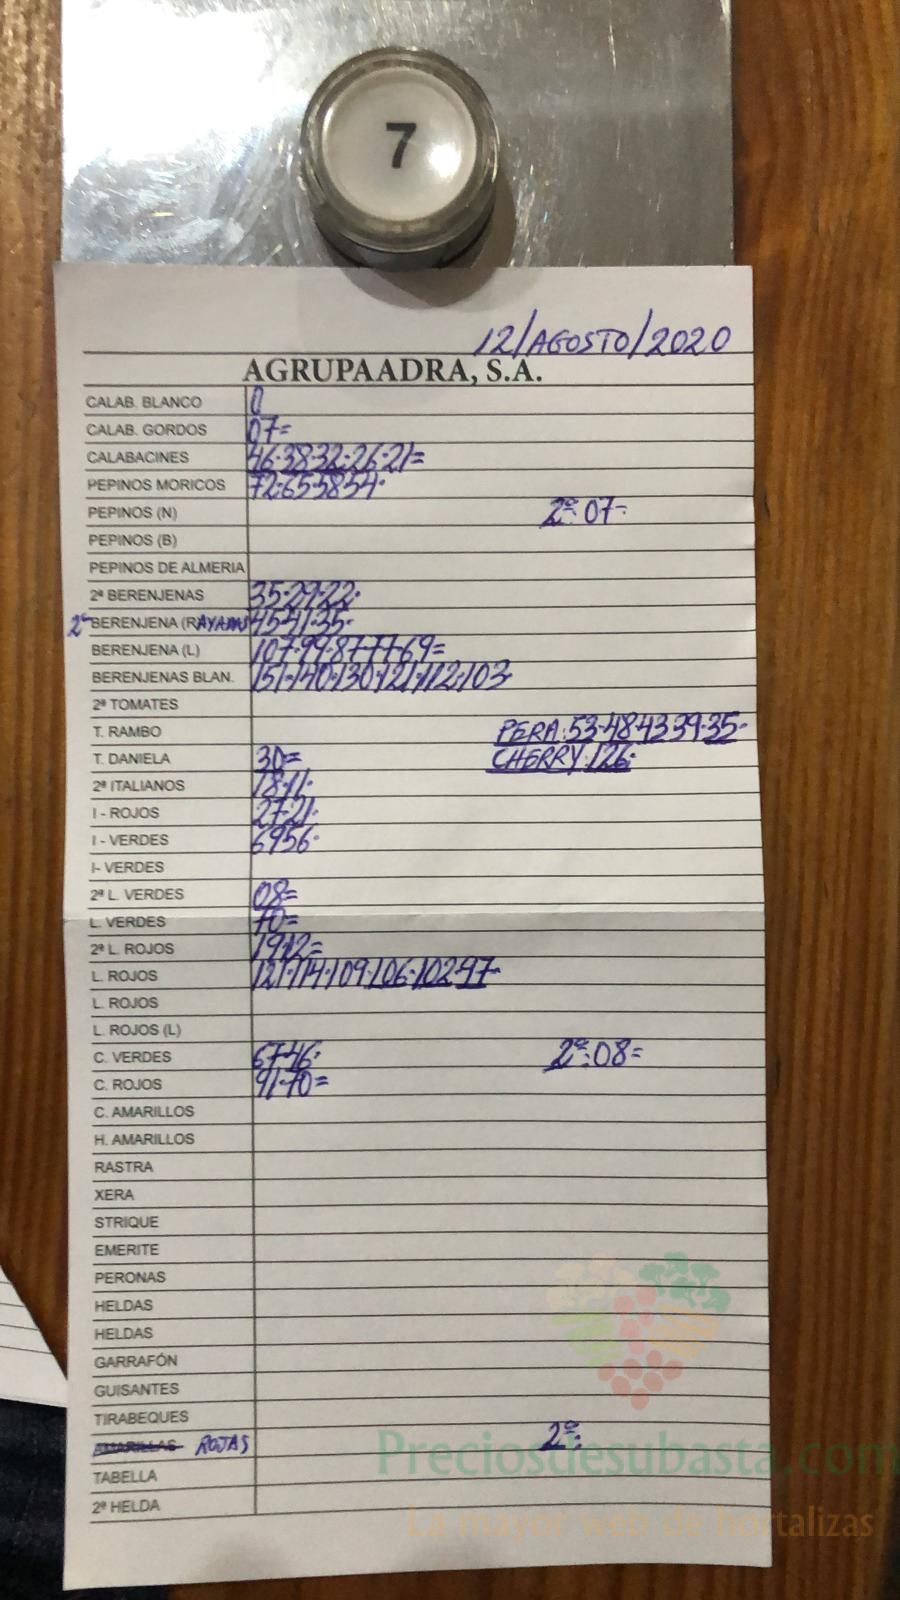 7
12/AGOSTO/2020
AGRUPAADRA, S.A.
CALAB. BLANCO 0
CALAB. GORDOS 07=
CALABACINES 46·38·32·26·21=
PEPINOS MORICOS 72·65·58·54·
PEPINOS (N) 2ª: 07-
PEPINOS (B)
PEPINOS DE ALMERIA
2ª BERENJENAS 35·29·22·
2ª BERENJENA (RAYADAS 45·41·35·
BERENJENA (L) 107·99·87·77·69=
BERENJENAS BLAN. 151·140·130·121·112·103
2ª TOMATES
T. RAMBO PERA: 53·48·43·39·35·
T. DANIELA 30= CHERRY: 126·
2ª ITALIANOS 18·11·
I - ROJOS 27·21·
I - VERDES 69·56·
I- VERDES
2ª L. VERDES 08=
L. VERDES 70=
2ª L. ROJOS 19·12=
L. ROJOS 121·114·109·106·102·97-
L. ROJOS
L. ROJOS (L)
C. VERDES 67·46· 2ª: 08=
C. ROJOS 91·70=
C. AMARILLOS
H. AMARILLOS
RASTRA
XERA
STRIQUE
EMERITE
PERONAS
HELDAS
HELDAS
GARRAFÓN
GUISANTES
TIRABEQUES
AMARILLAS ROJAS 2ª:
TABELLA
2ª HELDA
Preciosdesubasta.com
La mayor web de hortalizas